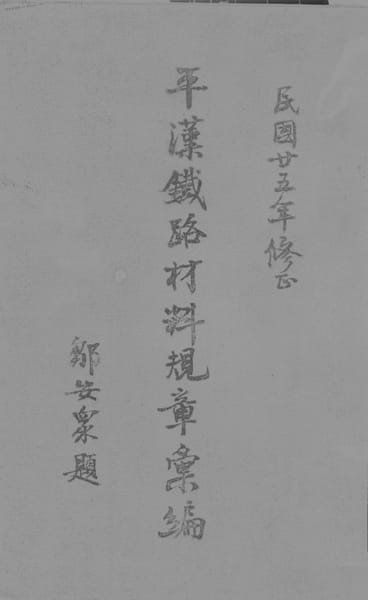 民國廿五年修正
平漢鐵路材料規章彙編
鄒安衆題